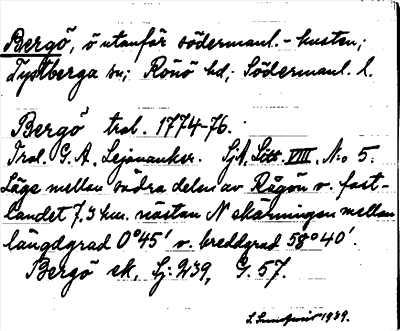 Bergö, ö utanför södermanl.-kusten;
Tystberga sn; Rönö hd; Södermanl. l.
Bergö trol. 1774-76.
Trol. G. A. Lejonanker. SjA, Litt. VIII, No 5.
Läge mellan södra delen av Rågön o. fast-
landet 7,3 km. nästan N skärningen mellan
längdgrad 0°45' o. breddgrad 58°40'.
Bergö ek, Sj: 239, G. 57.
S. 1939.